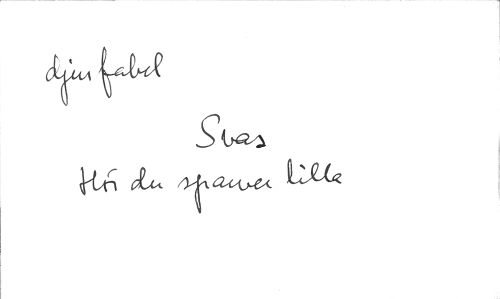 djurfabel
Svas
Hör du sparver lilla